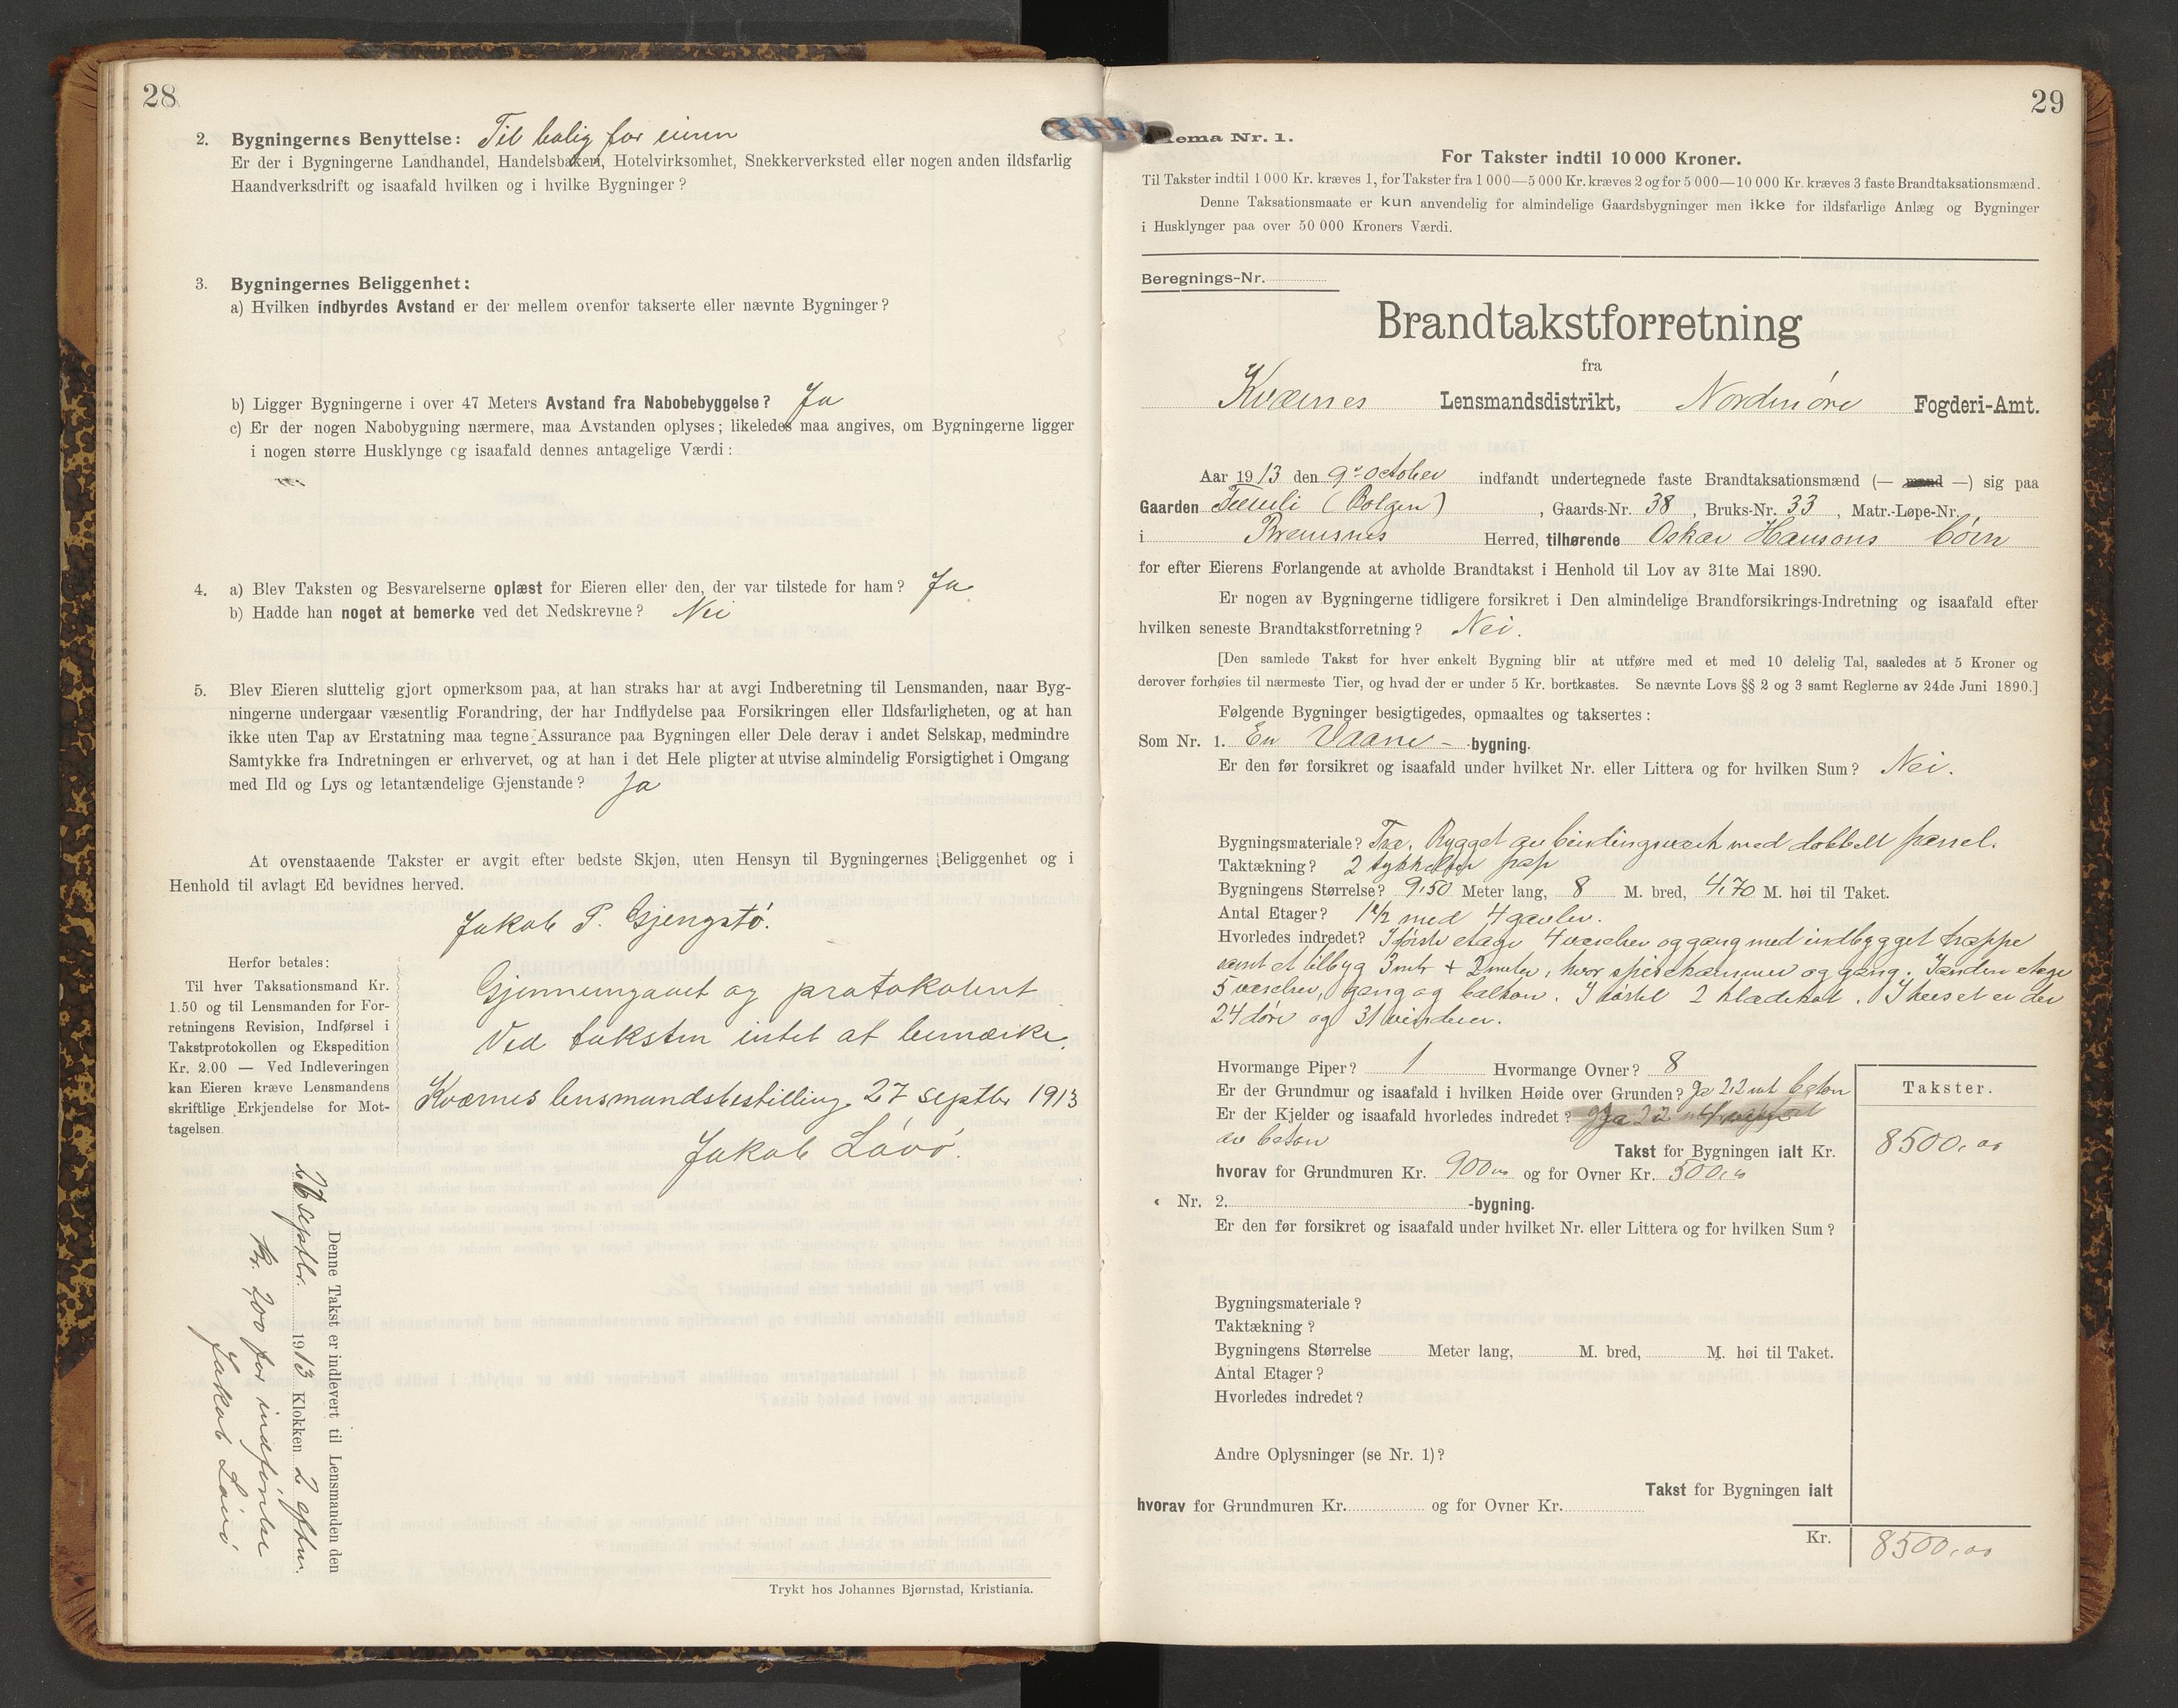 28
2. Bygningernes Benyttelse: Til bolig for eieren
Er der i Bygningerne Landhandel, Handelsbakeri, Hotelvirksomhet, Snekkerverksted eller nogen anden ildsfarlig
Haandverksdrift og isaafald hvilken og i hvilke Bygninger?
3. Bygningernes Beliggenhet:
a) Hvilken indbyrdes Avstand er der mellem ovenfor takserte eller nævnte Bygninger?
b) Ligger Bygningerne i over 47 Meters Avstand fra Nabobebyggelse? Ja
c) Er der nogen Nabobygning nærmere, maa Avstanden oplyses; likeledes maa angives, om Bygningerne ligger
i nogen større Husklynge og isaafald dennes antagelige Værdi:
4. a) Blev Taksten og Besvarelserne oplæst for Eieren eller den, der var tilstede for ham? Ja
b) Hadde han noget at bemerke ved det Nedskrevne? Nei
5. Blev Eieren sluttelig gjort opmerksom paa, at han straks har at avgi Indberetning til Lensmanden, naar Byg-
ningerne undergaar væsentlig Forandring, der har Indflydelse paa Forsikringen eller Ildsfarligheten, og at han
ikke uten Tap av Erstatning maa tegne Assurance paa Bygningen eller Dele derav i andet Selskap, medmindre
Samtykke fra Indretningen er erhvervet, og at han i det Hele pligter at utvise almindelig Forsigtighet i Omgang
med Ild og Lys og letantændelige Gjenstande? Ja
At ovenstaaende Takster er avgit efter bedste Skjøn, uten Hensyn til Bygningernes Beliggenhet og i
Henhold til avlagt Ed bevidnes herved.
Jakob P. Gjengstø.
Herfor betales:
Til hver Taksationsmand Kr.
1.50 og til Lensmanden for For-
retningens Revision, Indførsel i
Takstprotokollen og Ekspedition
Kr. 2.00 — Ved Indleveringen
kan Eieren kræve Lensmandens
skriftlige Erkjendelse for Mot-
tagelsen
Gjennemgaaet og protokolert
Ved taksten intet at bemærke.
Kværnes lensmandsbestilling 27 septbr 1913
Jakob Løvø.
Denne Takst er indlevert til Lensmanden den
26 septbr. 1913 Klokken 2 eftm.
Kr. 2,00 for indførelse
Jakob Løvø
Trykt hos Johannes Bjørnstad, Kristiania.
29
ema Nr. 1.
For Takster indtil 10 000 Kroner.
Til Takster indtil 1 000 Kr. kræves 1, for Takster fra 1 000—5 000 Kr. kræves 2 og for 5 000—10 000 Kr. kræves 3 faste Brandtaksationsmænd.
Denne Taksationsmaate er kun anvendelig for almindelige Gaardsbygninger men ikke for ildsfarlige Anlæg og Bygninger
i Husklynger paa over 50 000 Kroners Værdi.
Beregnings-Nr.
Brandtakstforretning
fra
Kværnes Lensmandsdistrikt, Nordmøre Fogderi-Amt.
Aar 1913 den 9de october indfandt undertegnede faste Brandtaksationsmænd (— mand —) sig paa
Gaarden (Bolgen), Gaards-Nr. 38, Bruks-Nr. 33, Matr.-Løpe-Nr.
i Bremsnes Herred, tilhørende Oskar Hansons børn
for efter Eierens Forlangende at avholde Brandtakst i Henhold til Lov av 31te Mai 1890.
Er nogen av Bygningerne tidligere forsikret i Den almindelige Brandforsikrings-Indretning og isaafald efter
hvilken seneste Brandtakstforretning? Nei.
[Den samlede Takst for hver enkelt Bygning blir at utføre med et med 10 delelig Tal, saaledes at 5 Kroner og
derover forhøies til nærmeste Tier, og hvad der er under 5 Kr. bortkastes. Se nævnte Lovs §§ 2 og 3 samt Reglerne av 24de Juni 1890.]
Følgende Bygninger besigtigedes, opmaaltes og taksertes:
Som Nr. 1. En Vaane - -bygning.
Er den før forsikret og isaafald under hvilket Nr. eller Littera og for hvilken Sum? Nei.
Bygningsmateriale? Træ, Bygget av bindingsverk med dobbelt pannel.
Taktækning? 2 tykkelser pap
Bygningens Størrelse? 9,50 Meter lang, 8 M. bred, 4,70 M. høi til Taket.
Antal Etager? 1 1/2 med 4 gavler.
Hvorledes indredet? I første etage 4 værelser og gang med indbygget trappe
samt et tilbyg 3 mtr + 2 meter, hvor spisekammer og gang. I anden etage
5 værelser, gang og balkon. I kvistel 2 klædekot. I huset er der
24 døre og 31 vinduer.
Hvormange Piper? 1 Hvormange Ovner? 8
Er der Grundmur og isaafald i hvilken Høide over Grunden? Ja 2,2 mt beton
Er der Kjelder og isaafald hvorledes indredet? Ja
av beton
Takst for Bygningen ialt Kr.
hvorav for Grundmuren Kr. 900,00 og for Ovner Kr. 500,00
Takster.
8500,00
« Nr. 2. -bygning.
Er den før forsikret og isaafald under hvilket Nr. eller Littera og for hvilken Sum?
Bygningsmateriale?
Taktækning?
Bygningens Størrelse Meter lang, M. bred, M. høi til Taket.
Antal Etager?
Hvorledes indredet?
Andre Oplysninger (se Nr. 1)?
Takst for Bygningen ialt
hvorav for Grundmuren Kr. og for Ovner Kr.
Kr. 8500,00